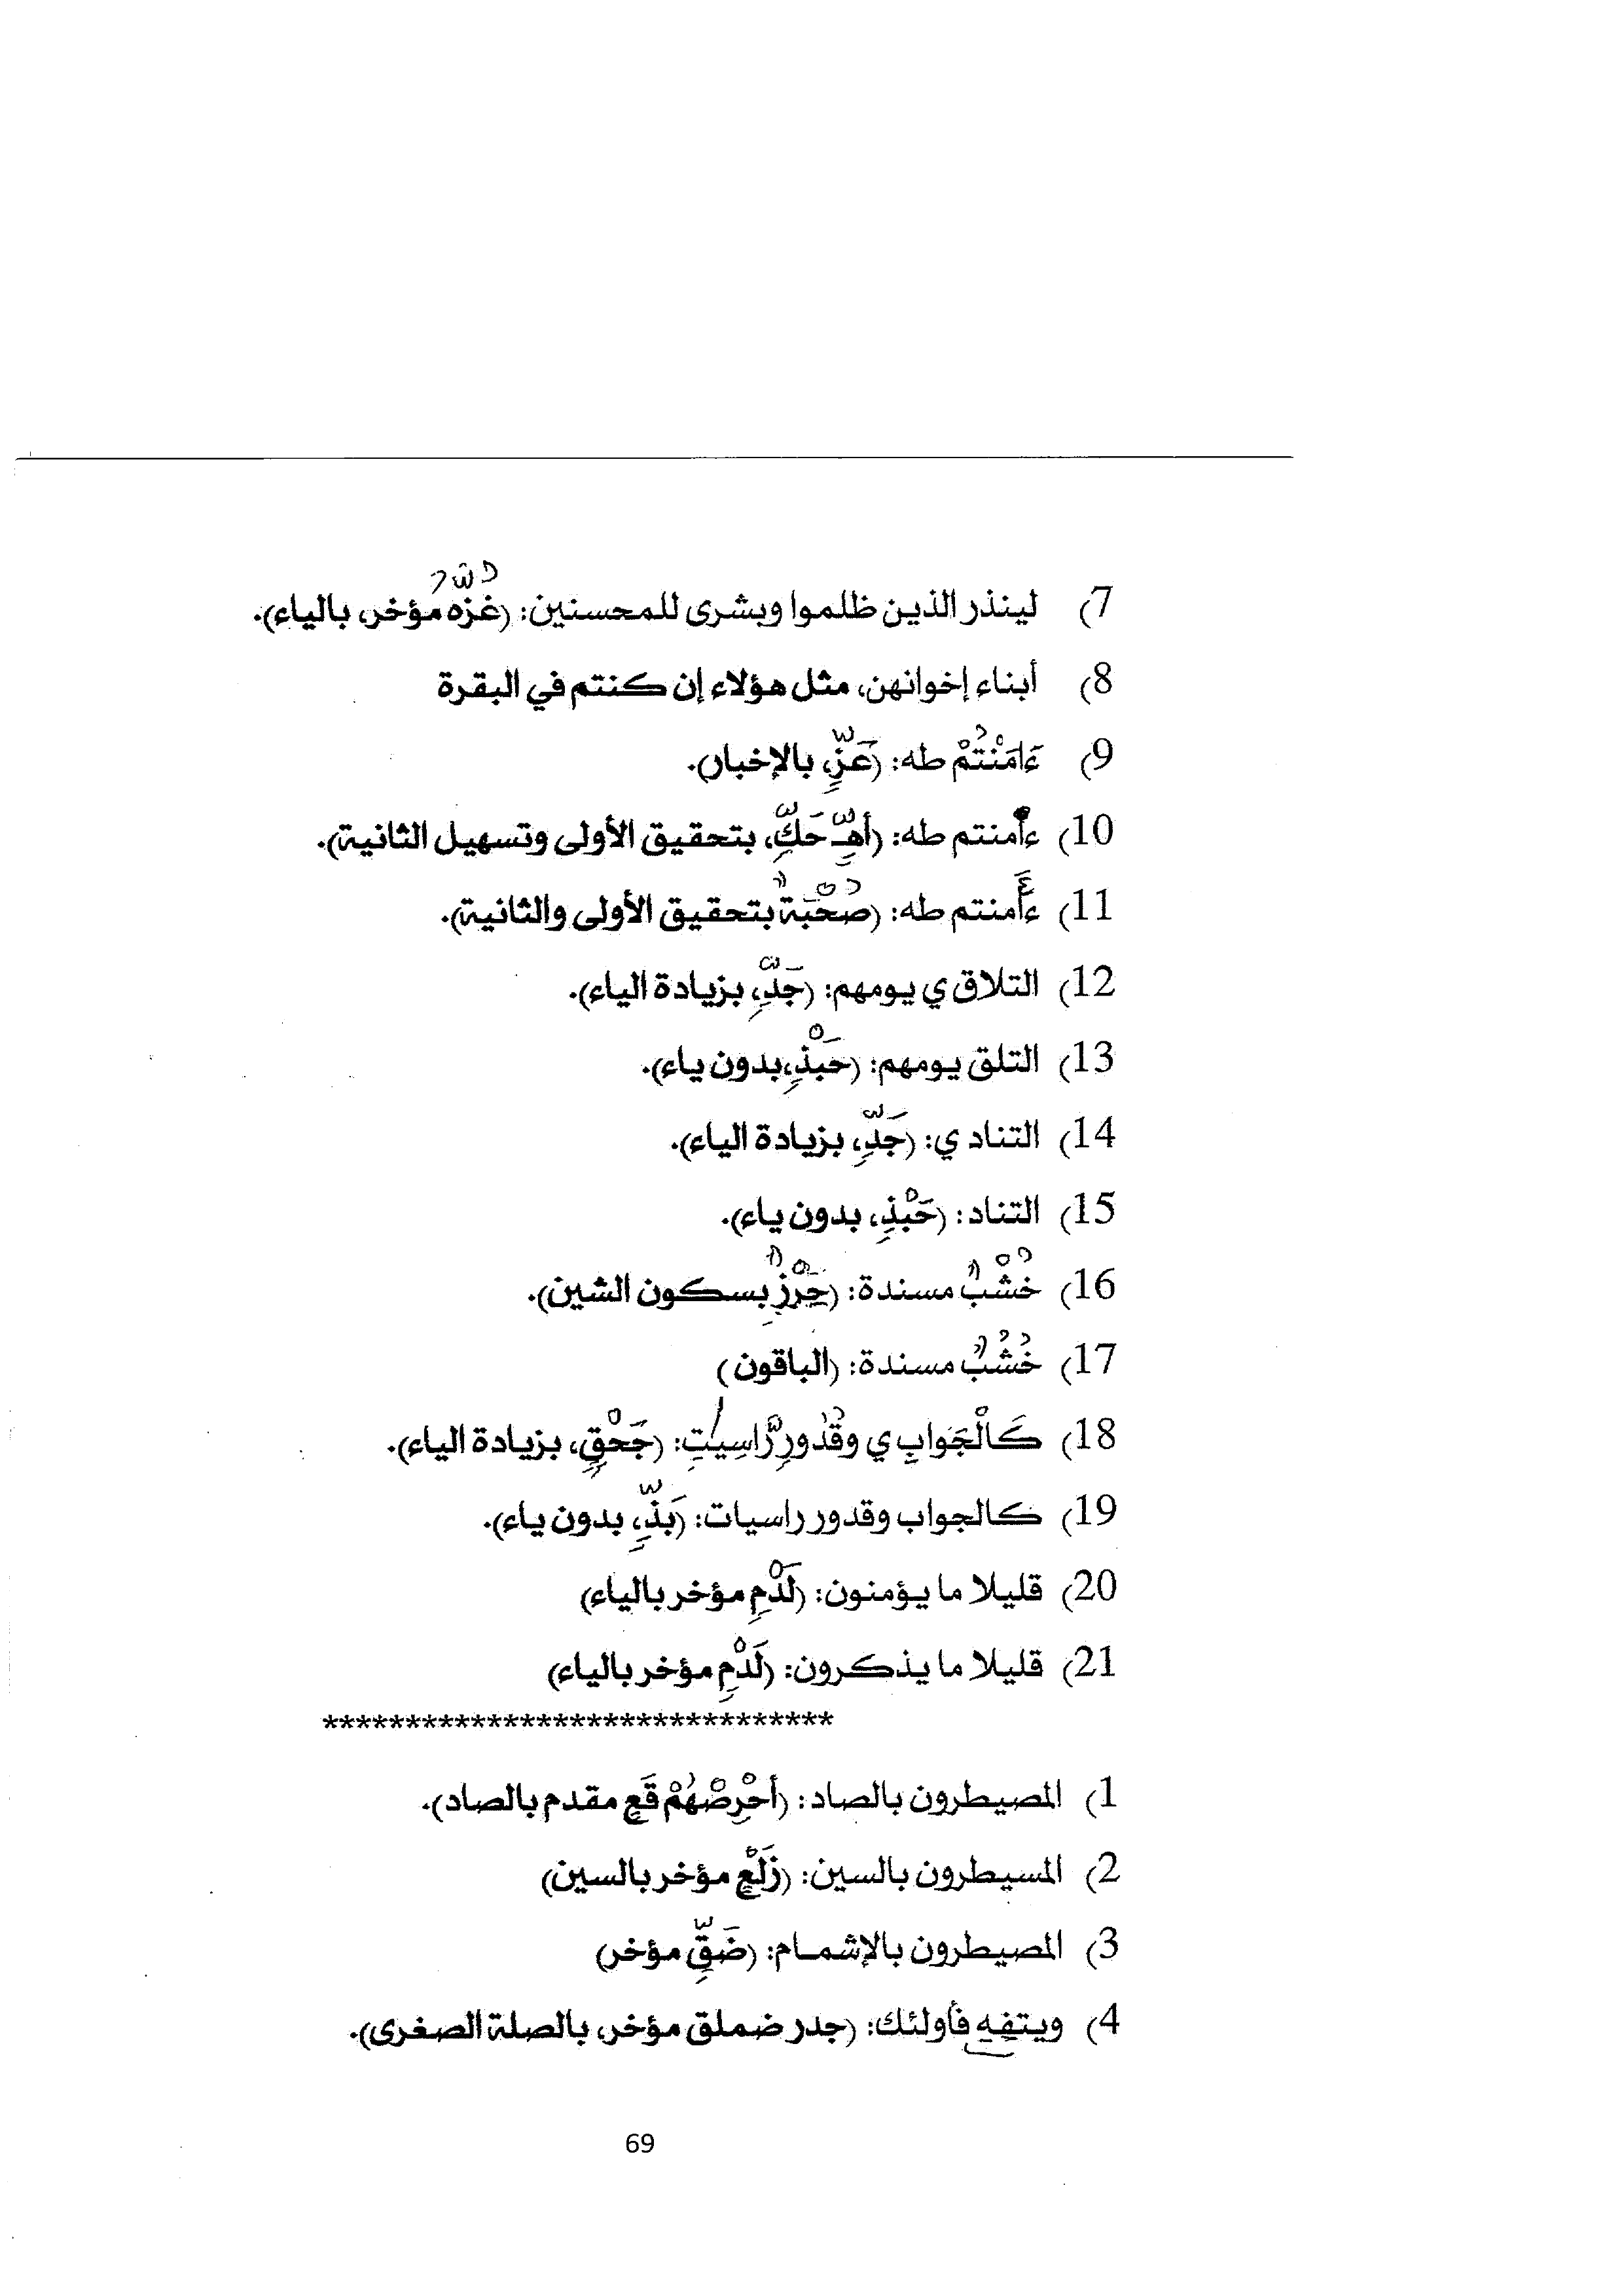 7) لينذر الذين ظلموا وبشرى للمحسنين: (غزه مؤخر، بالياء).
8) أبناء إخوانهن، مثل هؤلاء إن كنتم في البقرة
9) ءَامَنْتُمْ طه: (عَزٍّ، بالإخبار).
10) ءأمنتم طه: (أهـِّ حَكٍّ، بتحقيق الأولى وتسهيل الثانية).
11) ءأمنتم طه: (صُحْبَةٌ بتحقيق الأولى والثانية).
12) التلاق ي يومهم: (جَدِّ، بزيادة الياء).
13) التلق يومهم: (حَبْذِ، بدون ياء).
14) التناد ي: (جَدِّ، بزيادة الياء).
15) التناد: (حَبْذِ، بدون ياء).
16) خُشْبٌ مسندة: (حِرْزٌ بسكون الشين).
17) خُشُبٌ مسندة: (الباقون)
18) كَالْجَوابِ ي وقُدُورٍ رَّاسِيَٰتٍ: (جَحْقٍ، بزيادة الياء).
19) كالجواب وقدور راسيات: (بَذِّ، بدون ياء).
20) قليلا ما يؤمنون: (لَدْمٍ مؤخر بالياء)
21) قليلا ما يذكرون: (لَدْمٍ مؤخر بالياء)
*******************************
1) المصيطرون بالصاد: (أحْرِصْهُمْ قَعٍ مقدم بالصاد).
2) المسيطرون بالسين: (زَلْعٍ مؤخر بالسين)
3) المصيطرون بالإشمام: (ضَقٍّ مؤخر)
4) ويتفِهِ فأولئك: (جدر ضملق مؤخر، بالصلة الصغرى).
69